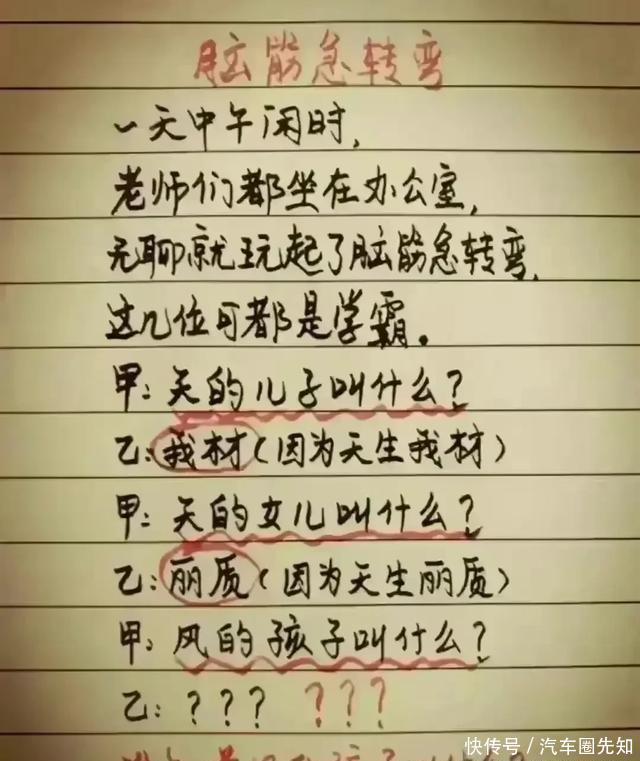 脑筋急转弯
一天中午闲时，
老师们都坐在办公室，
无聊就玩起了脑筋急转弯，
这几位可都是学霸。
甲：天的儿子叫什么？
乙：我材（因为天生我材）
甲：天的女儿叫什么？
乙：丽质（因为天生丽质）
甲：风的孩子叫什么？
乙：？？？ ？？？
快传号／汽车圈先知